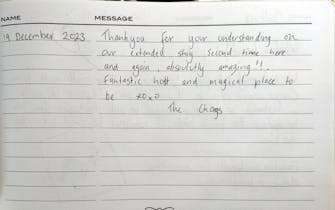 NAME MESSAGE
19 December 2023 Thankyou for your understanding on
our extended stay. Second time here
and again, absolutely amazing!!
Fantastic host and magical place to
be xoxo
The